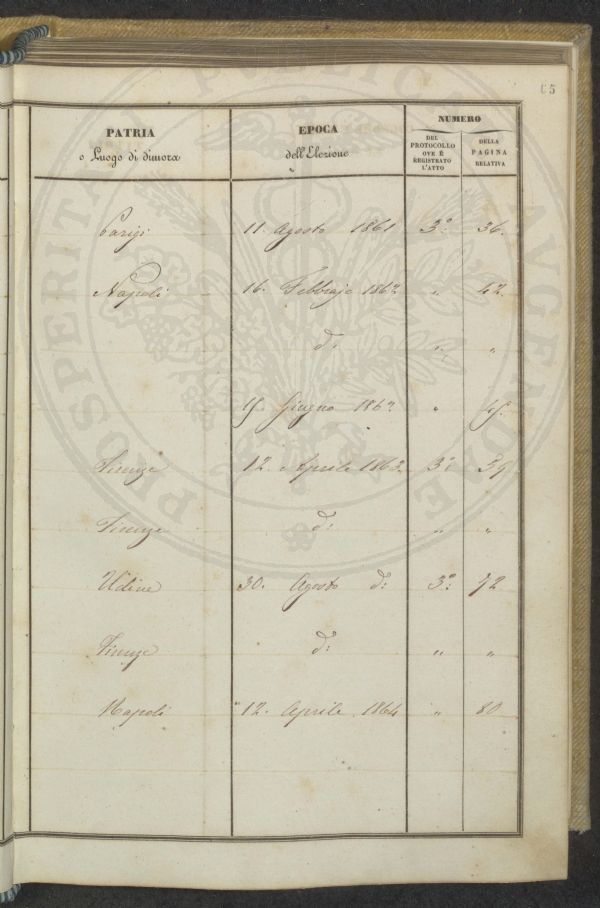 65
PATRIA
o Luogo di dimora
EPOCA
dell'Elezione
NUMERO
DEL
PROTOCOLLO
OVE È
REGISTRATO
L'ATTO
DELLA
PAGINA
RELATIVA
Parigi 11. Agosto 1861 3.° 36.
Napoli 16. Febbraje 1862 „ 42.
d: „ „
15 Giugno 1862 „
Firenze 12. Aprile 1863. 3.° 59
Firenze d: „ „
Udine 30. Agosto d: 3.° 72
Firenze d: „ „
Napoli 12. Aprile 1864 „ 80
PROSPERITATI PUBLICAE AUGENDAE